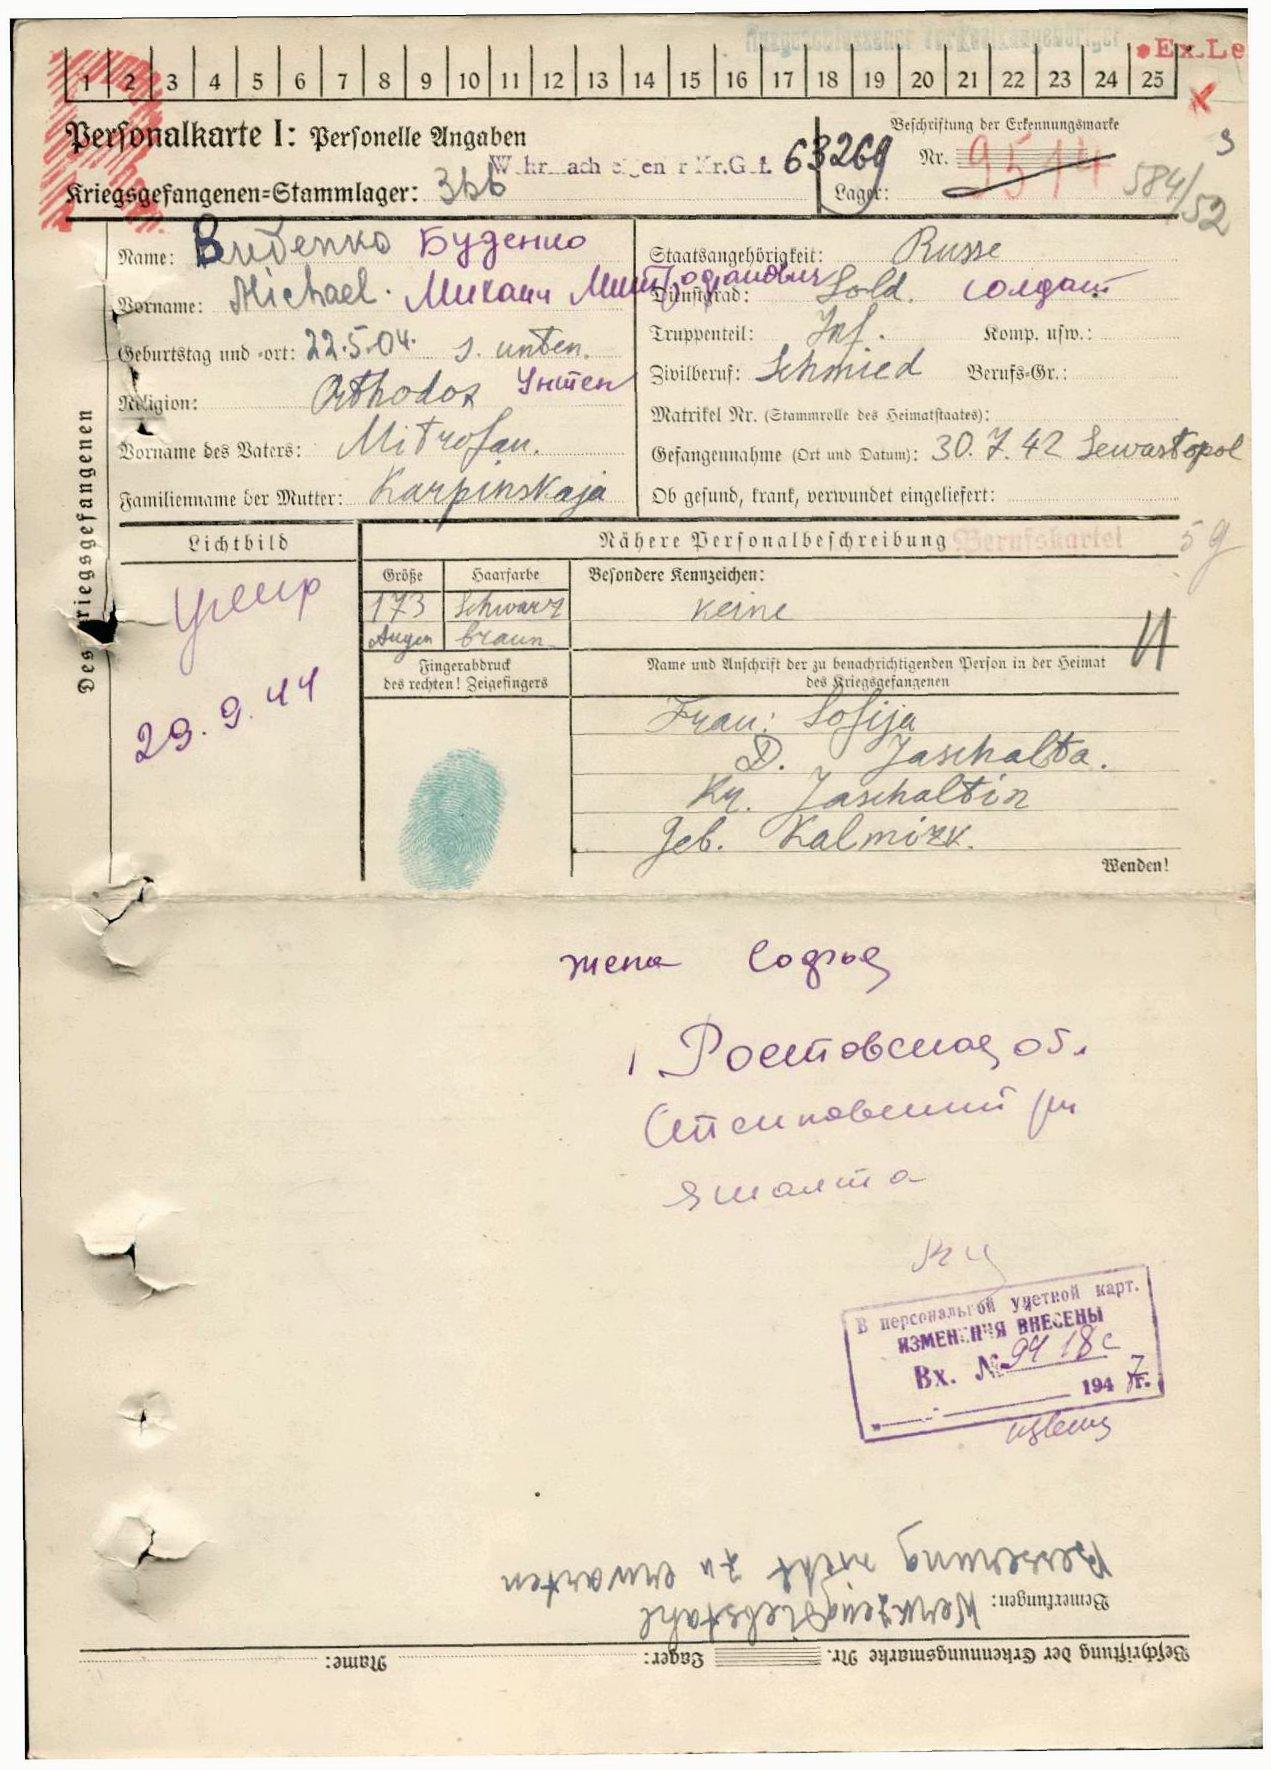 Ex.Le
1 2 3 4 5 6 7 8 9 10 11 12 13 14 15 16 17 18 19 20 21 22 23 24 25
Personalkarte I: Personelle Angaben
Beschriftung der Erkennungsmarke
63269 Nr. 9514
Kriegsgefangenen-Stammlager: 366
Lager:
584/52
Des Kriegsgefangenen
Name: Budenko Буденко
Staatsangehörigkeit: Russe
Vorname: Michael. Михаил Митрофанович
Dienstgrad: Sold. солдат
Geburtstag und -ort: 22.5.04. s. unten.
Truppenteil: Inf. Komp. usw.:
Унтен
Religion: Orthodox
Zivilberuf: Schmied Berufs-Gr.:
Matrikel Nr. (Stammrolle des Heimatstaates):
Vorname des Vaters: Mitrofan.
Gefangennahme (Ort und Datum): 30.7.42 Sewastopol
Familienname der Mutter: Karpinskaja
Ob gesund, krank, verwundet eingeliefert:
Lichtbild
Nähere Personalbeschreibung
Berufskartei
59
Größe Haarfarbe Besondere Kennzeichen:
173 schwarz keine
Augen braun
умер
29.9.44
Fingerabdruck
des rechten! Zeigefingers
Name und Anschrift der zu benachrichtigenden Person in der Heimat
des Kriegsgefangenen
Frau: Sofija
D. Jaschalta.
Kr. Jaschaltin
Geb. Kalmizk.
Wenden!
жена Софья
Ростовская об.
яшалта
В персональной учетной карт.
ИЗМЕНЕНИЯ ВНЕСЕНЫ
Вх. № 9418с
1947г.
Bemerkungen: Werkzeugdiebstahl
Besserung nicht zu erwarten
Beschriftung der Erkennungsmarke Nr. Lager: Name: